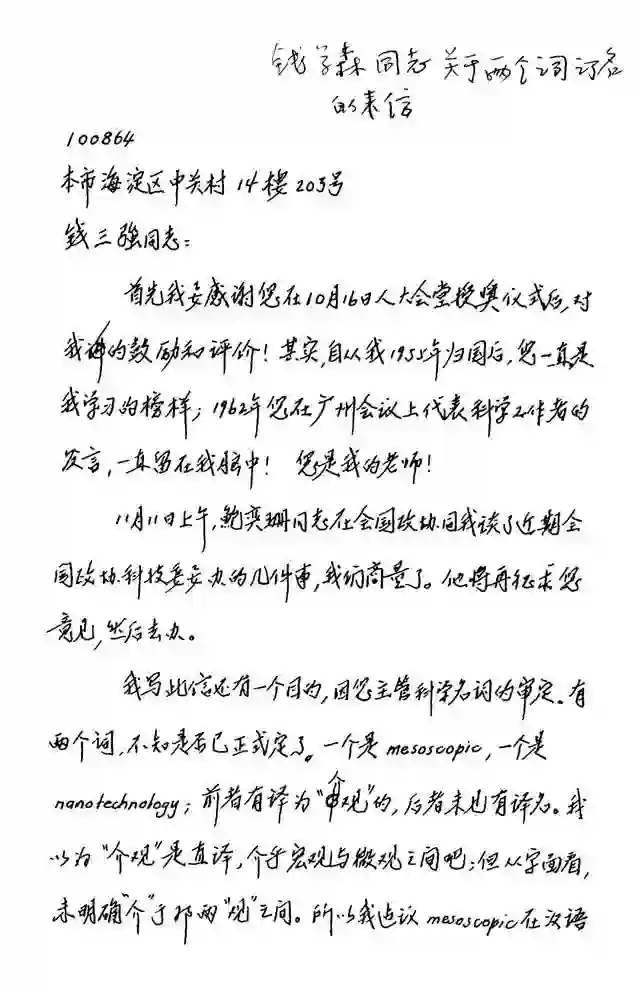 钱学森同志关于两个词订名
的来信
100864
本市海淀区中关村14楼203号
钱三强同志：
首先我要感谢您在10月16日人大会堂授奖仪式后，对
我的鼓励和评价！其实，自从我1955年归国后，您一直是
我学习的榜样；1962年您在广州会议上代表科学工作者的
发言，一直留在我脑中！您是我的老师！
11月11日上午，鲍奕珊同志在全国政协同我谈了近期全
国政协科技委要办的几件事，我们商量了。他将再征求您
意见，然后去办。
我写此信还有一个目的，因您主管科学名词的审定。有
两个词，不知是否已正式定了。一个是mesoscopic，一个是
nanotechnology；前者有译为“介观”的，后者未也有译名。我
以为“介观”是直译，介乎宏观与微观之间吧；但从字面看，
未明确“介”于那两“观”之间。所以我建议mesoscopic在汉语